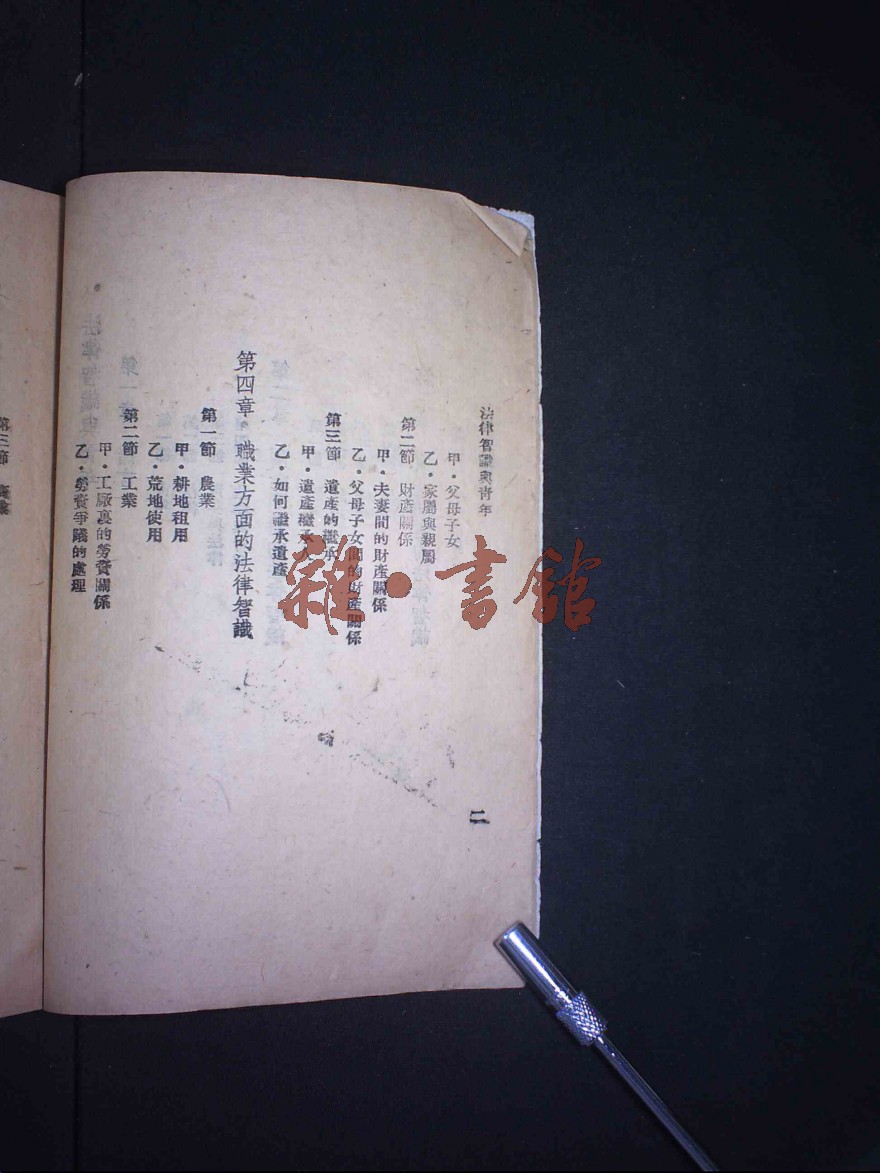 法律智識與青年
甲・父母子女
乙・家屬與親屬
第二節　財產關係
甲・夫妻間的財產關係
乙・父母子女間的財產關係
第三節　遺產的繼承
甲・遺產繼承人
乙・如何繼承遺產
第四章・職業方面的法律智識
第一節　農業
甲・耕地租用
乙・荒地使用
第二節　工業
甲・工厰裏的勞資關係
乙・勞資爭議的處理
二
第三節
雜・書館